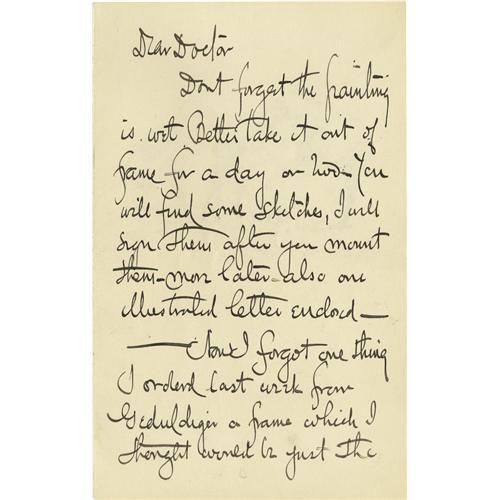 Dear Doctor
Dont forget the painting
is wet. Better take it out of
frame for a day or two - You
will find some sketches, I will
sign them after you mount
them - mon later - also one
illustrated letter enclosed —
— Now I forgot one thing
I orderd last week from
Geduldiger a frame which I
thought would be just the